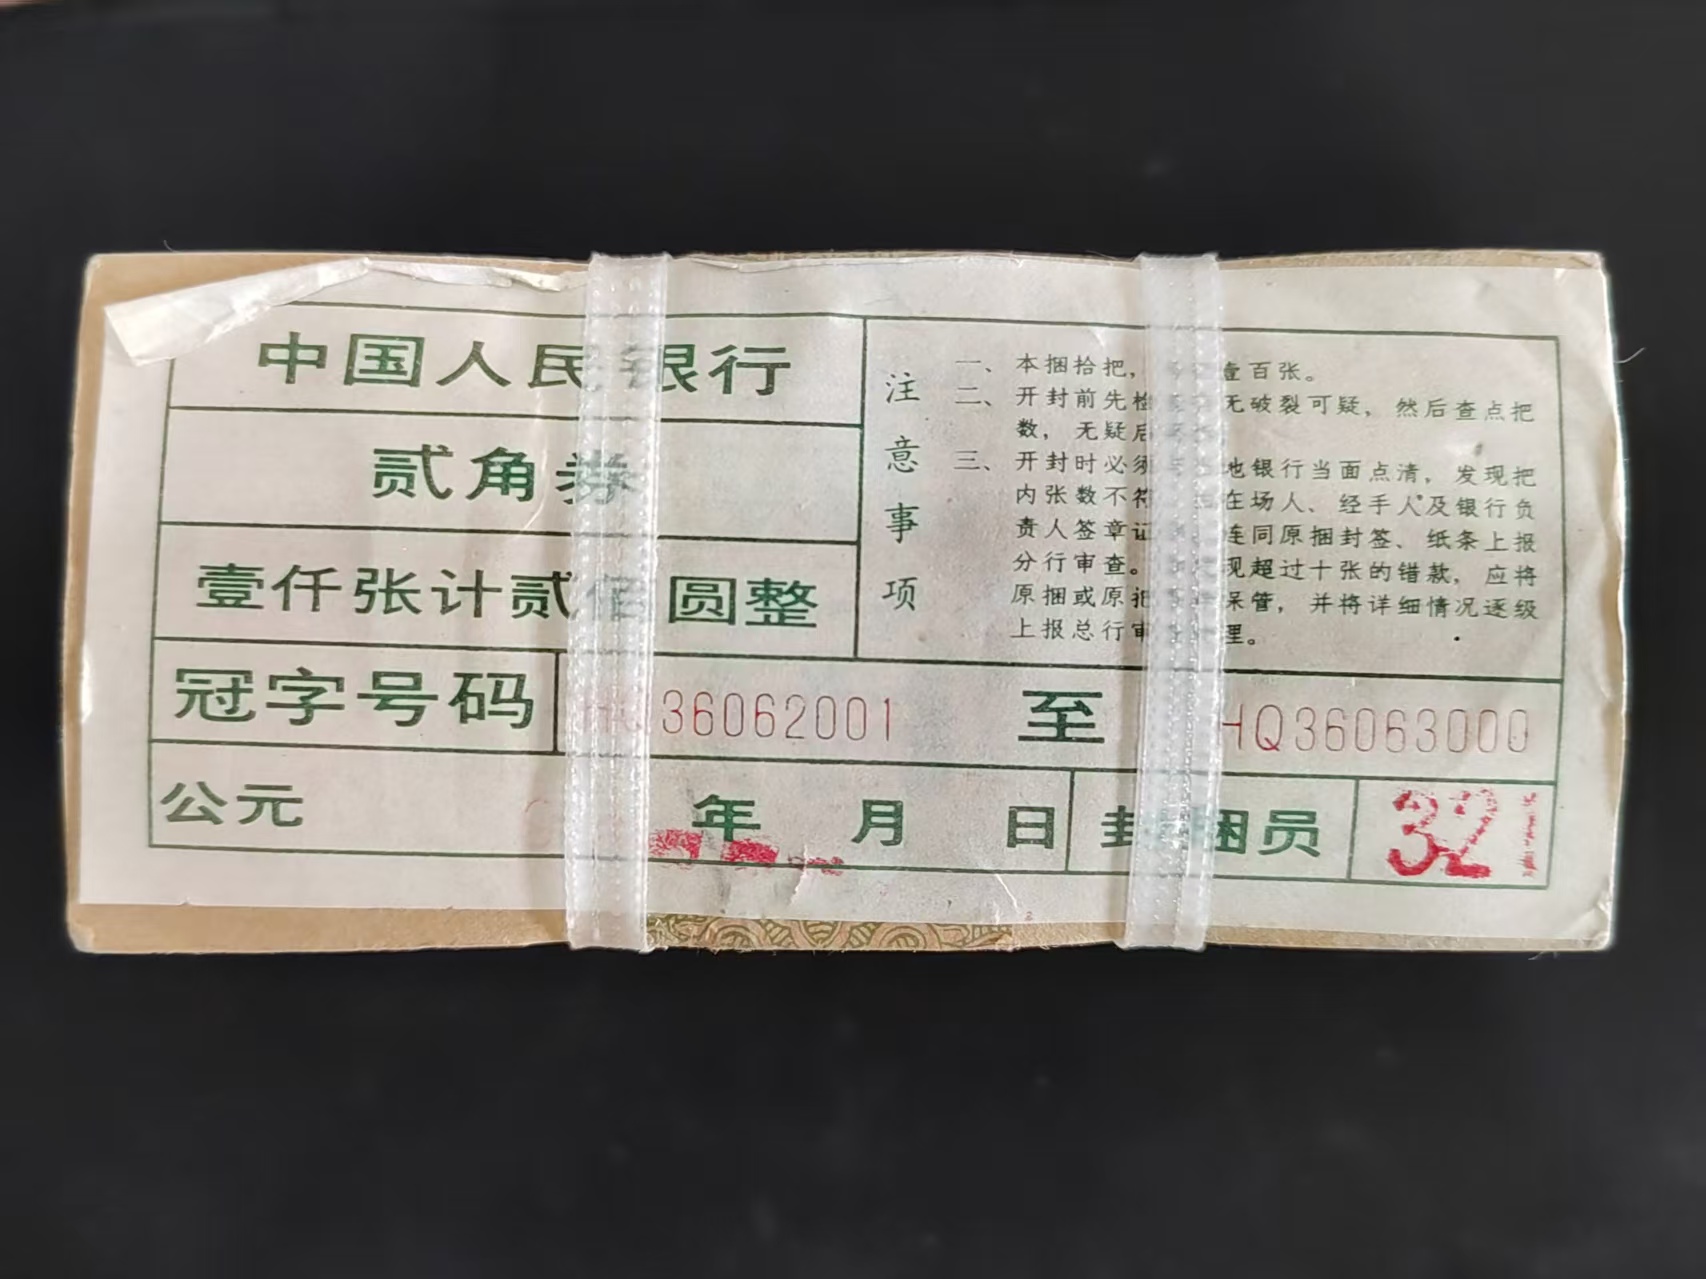 中国人民银行
贰角券
壹仟张计贰佰圆整
注意事项
一、本捆拾把，壹百张。
二、开封前先检无破裂可疑，然后查点把
数，无疑后
三、开封时必须地银行当面点清，发现把
内张数不符在场人、经手人及银行负
责人签章证连同原捆封签、纸条上报
分行审查。现超过十张的错款，应将
原捆或原把保管，并将详细情况逐级
上报总行审理。
冠字号码 HQ36062001 至 HQ36063000
公元 年 月 日 封捆员 321